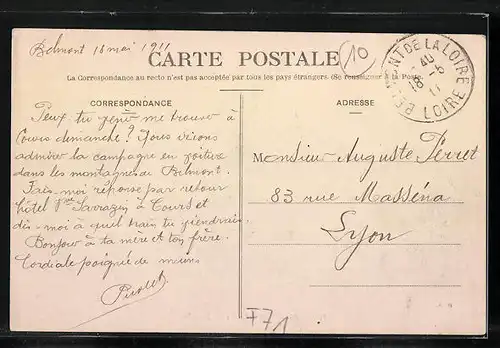 Belmont 16 mai 1911
CARTE POSTALE
(10)
La Correspondance au recto n'est pas acceptée par tous les pays étrangers. (Se renseigner à la Poste)
BELMONT DE LA LOIRE
18 -5
11
LOIRE
CORRESPONDANCE
Peux tu venir me trouver à
Cours dimanche? Nous irions
admirer la campagne en voiture
dans les montagnes de Belmont.
Fais-moi réponse par retour
hôtel Vve Sarrazin à Cours et
dis-moi à quel train tu viendrais.
Bonjour à ta mère et ton frère.
Cordiale poignée de mains
ADRESSE
Monsieur Auguste Perret
83 rue Masséna
Lyon
F71